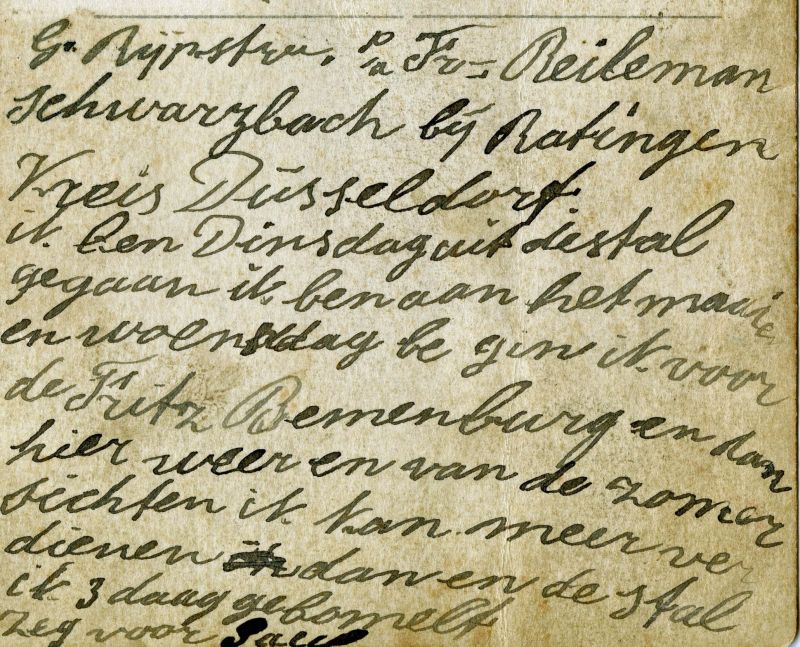 G. Rijpstra. p/a Fr= Reileman
schwarzbach bij Ratingen
Kreis Düsseldorf
ik ben Dinsdag uit de stal
gegaan ik ben aan het maaie
en woensdag be gin ik voor
de Fritz Bemenburg en dan
hier weer en van de zomer
sichten ik kan meer ver
dienen dan en de stal
ik 3 daag gebomelt
zeg voor Paul